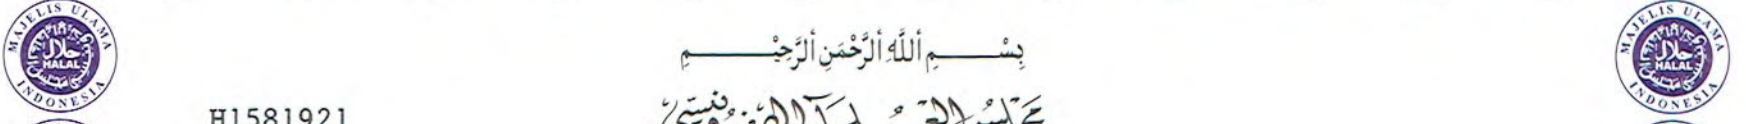 MAJELIS ULAMA INDONESIA
حلال
HALAL
بِسْــــمِ أللَّهِ ألرَّحْمَنِ ألرَّحِيْــــمِ
MAJELIS ULAMA INDONESIA
حلال
HALAL
H1581921